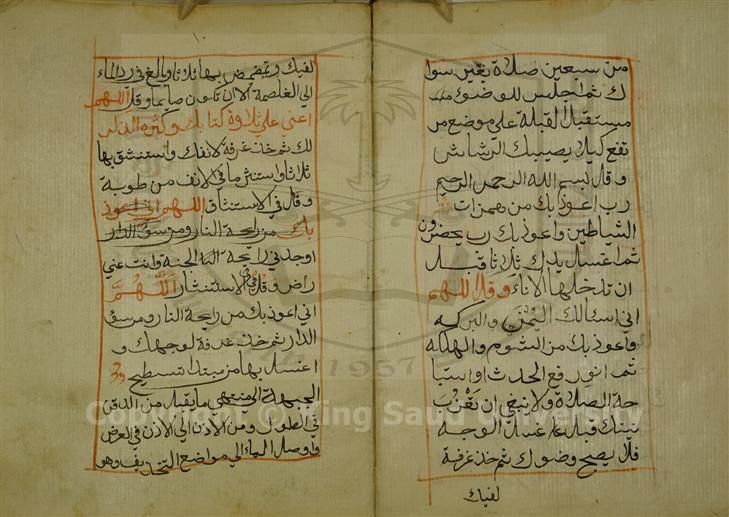 من سبعين صلاة بغير سوا
ك ثم اجلس للوضوء
مستقبل القبلة علي موضع مر
تفع كيلا يصيبك الرشاش
وقل بسم الله الرحمن الرحيم
رب اعوذ بك من همزات
الشياطين واعوذ بك رب يحضرون
ثم اغسل يدك ثلاثا قبل
ان تدخلها الاناء وقل اللهم
اني اسالك اليمن والبركه
واعوذ بك من الشوم والهلكه
ثم انوي رفع الحدث او استبا
حة الصلاة ولا ينبغي ان تعزب
نيتك قبل غسل الوجه
فلا يصح وضوك ثم خذ غرفة
لفيك
لفيك وتمضمض بها ثلاثا وبالغ في رد الماء
الي الغلصمة الا ان تكون صايما وقل اللهم
اعني علي تلاوة كتابك وكثره الذكر
لك ثم خذ غرفة لانفك واستنشق بها
ثلاثا واستنثر ما في الانف من طوبة
وقل في الاستنشاق اللهم اني اعوذ
بك من رايحة النار ومن سوء الدار
اوجدني رايحة الجنة وانت عني
راض وقل في الاستنثار اللهم
اني اعوذ بك من رايحة النار ومن سوء
الدار ثم خذ غرفة لوجهك و
اغسل بها من مبتدا تسطيح
الجبهة الي منتهي ما يقبل من الذقن
في الطول ومن الاذن الي الاذن في العرض
واوصل الماء الي مواضع التحذيف وهو
Copyright © King Saud University
1957